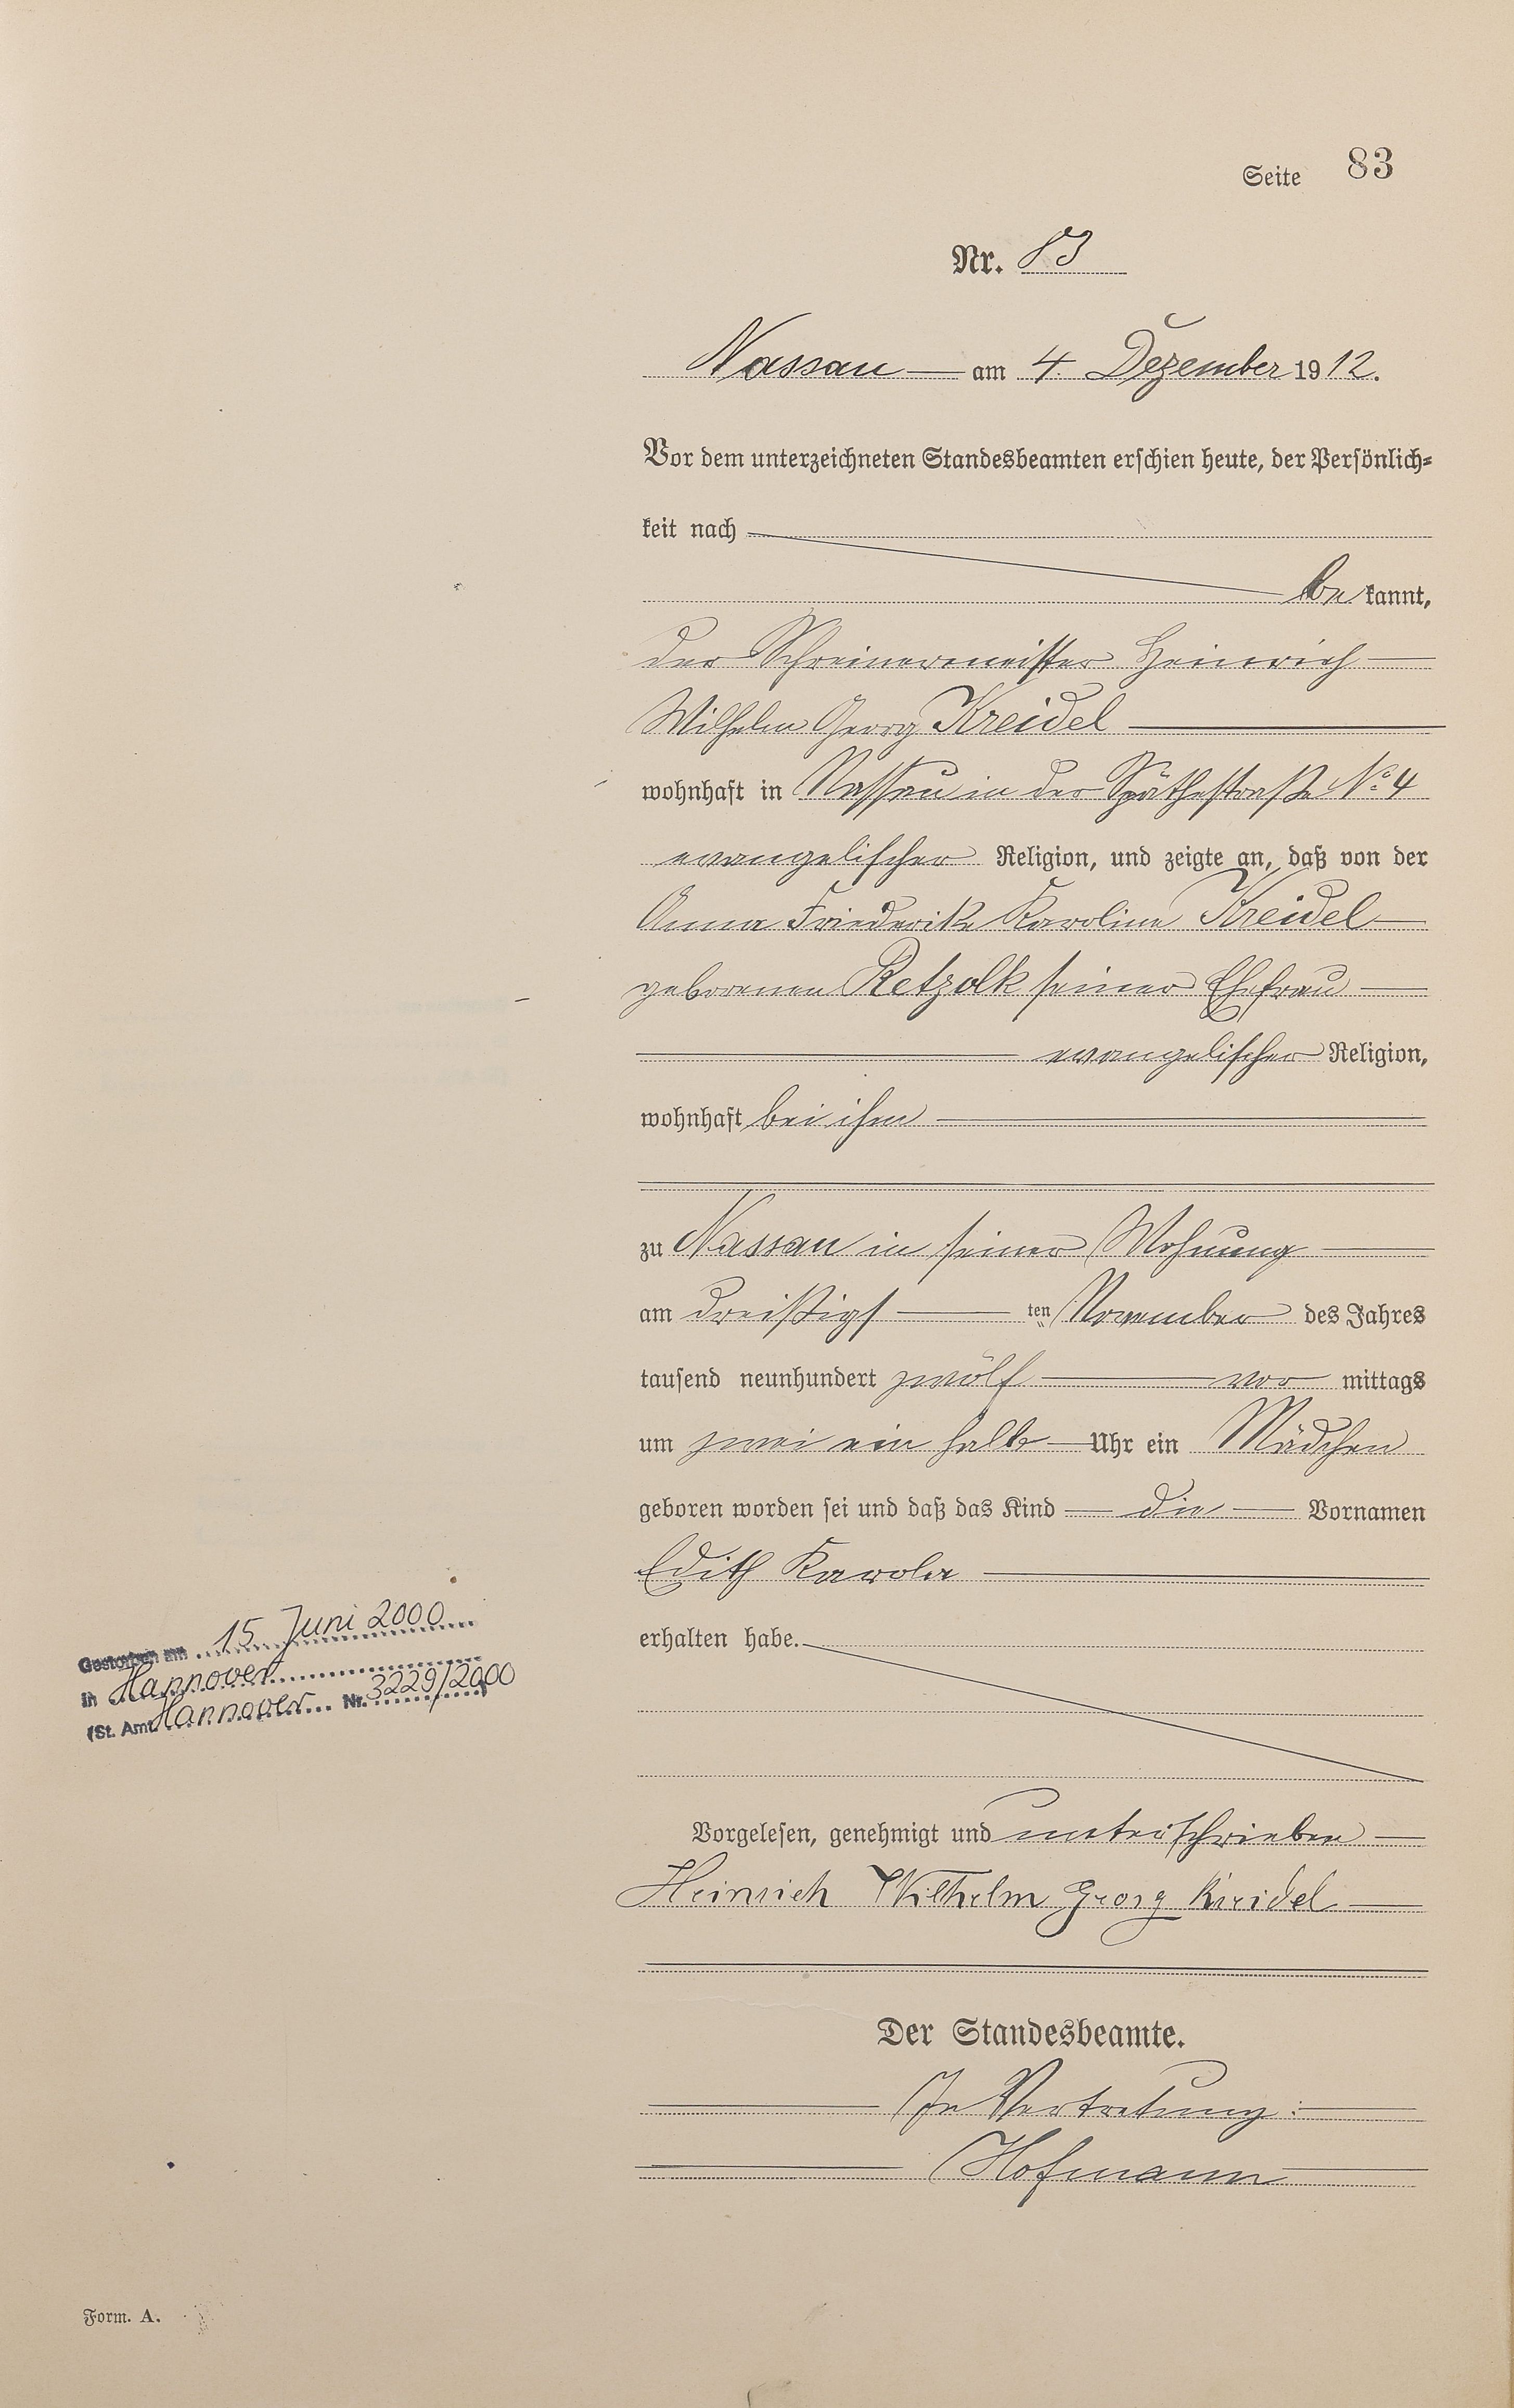 Seite 83
Nr. 83
Nassau am 4. Dezember 1912.
Vor dem unterzeichneten Standesbeamten erschien heute, der Persönlich-
keit nach
be kannt,
der Schreinermeister Heinrich
Wilhelm Georg Kreidel
wohnhaft in Nassau in der Späthestraße No 4
evangelischer Religion, und zeigte an, daß von der
Anna Friederike Karoline Kreidel
geborenen Retzolk seiner Ehefrau
evangelischer Religion,
wohnhaft bei ihm
zu Nassau in seiner Wohnung
am dreißigsten November des Jahres
tausend neunhundert zwölf vor mittags
um zwei ein halb Uhr ein Mädchen
geboren worden sei und daß das Kind die Vornamen
Edith Karola
erhalten habe.
Gestorben am 15 Juni 2000
in Hannover
(St. Amt Hannover Nr. 3229/2000)
Vorgelesen, genehmigt und unterschrieben
Heinrich Wilhelm Georg Kreidel
Der Standesbeamte.
In Vertretung:
Hofmann
Form. A.